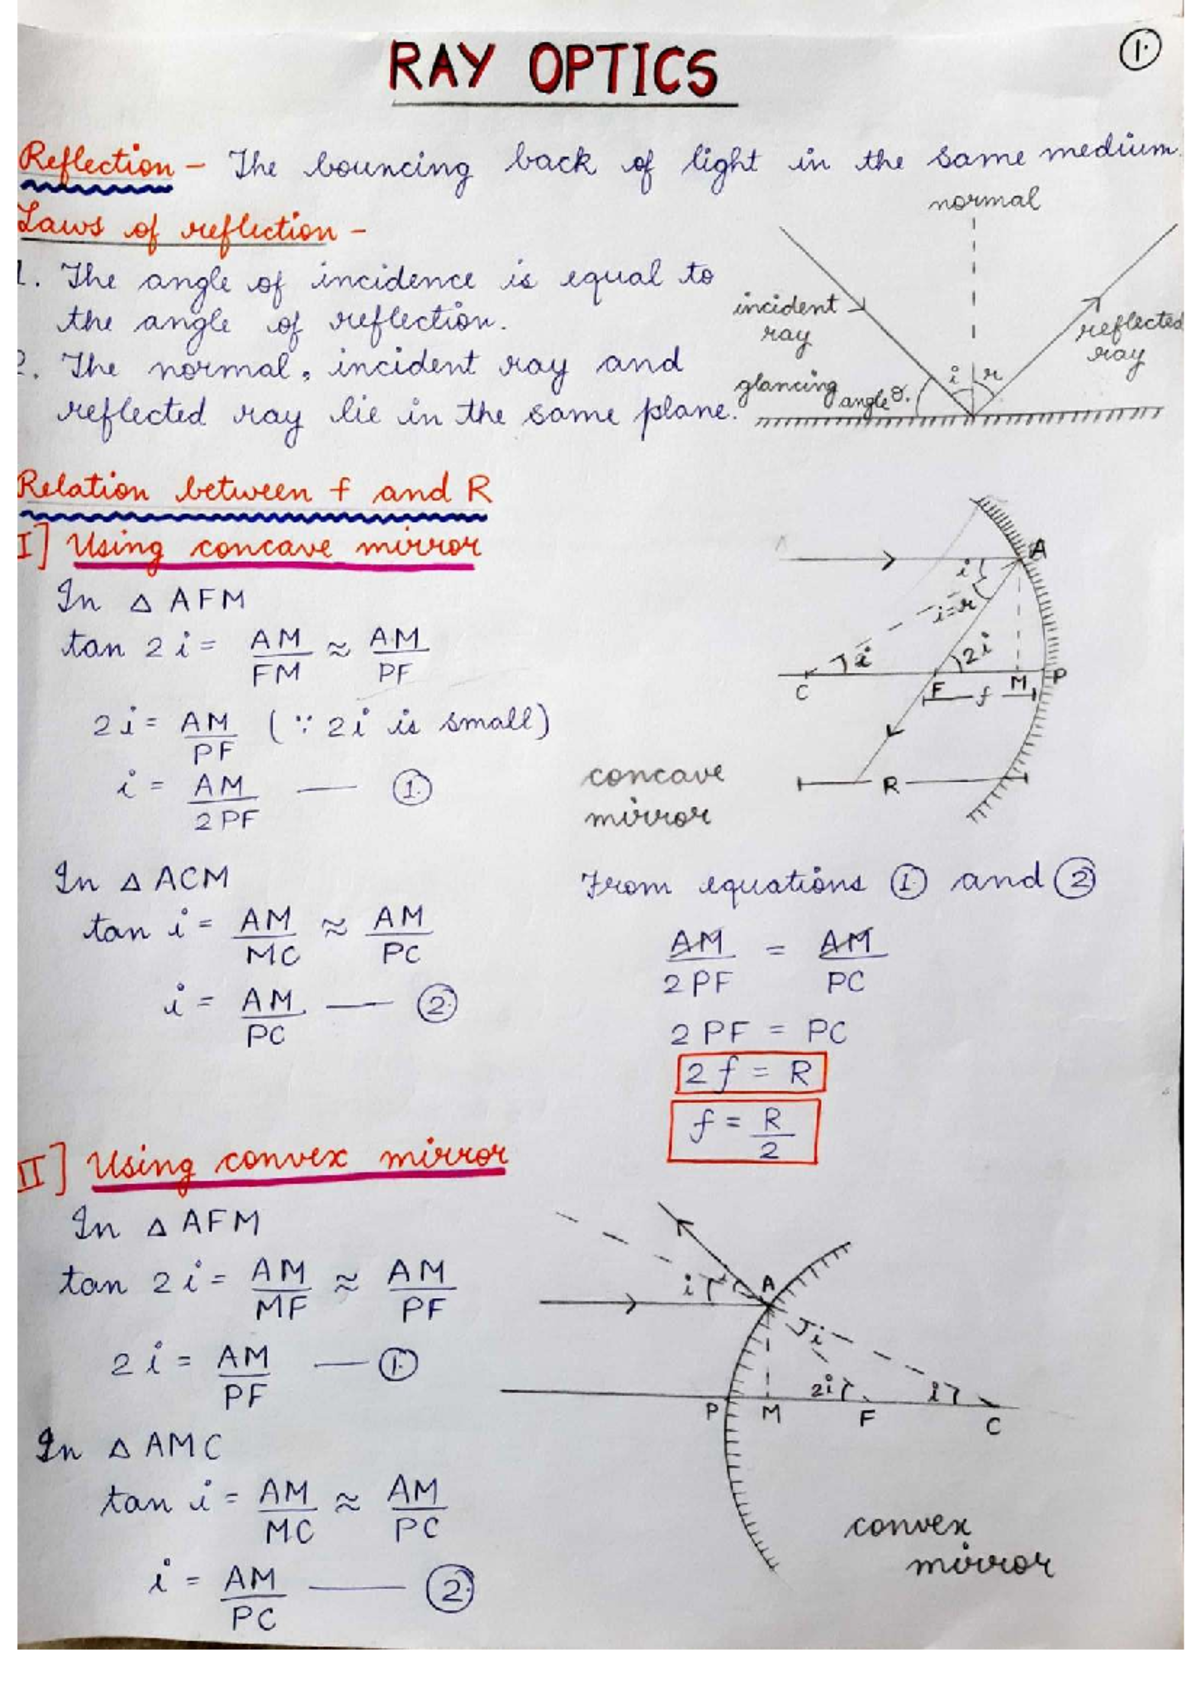 RAY OPTICS
1.
Reflection - The bouncing back of light in the same medium.
Laws of reflection -
1. The angle of incidence is equal to
the angle of reflection.
2. The normal, incident ray and
reflected ray lie in the same plane.
normal
incident
ray
reflected
ray
glancing
angle
i
r
Relation between f and R
I] Using concave mirror
In △ AFM
tan 2i = AM/FM ≈ AM/PF
2i = AM/PF (∵ 2i is small)
i = AM/2PF — ①
A
i
i=r
i
2i
C
F
f
M
P
R
concave
mirror
In △ ACM
tan i = AM/MC ≈ AM/PC
i = AM/PC — ②
From equations ① and ②
AM/2PF = AM/PC
2PF = PC
2f = R
f = R/2
II] Using convex mirror
In △ AFM
tan 2i = AM/MF ≈ AM/PF
2i = AM/PF — ①
In △ AMC
tan i = AM/MC ≈ AM/PC
i = AM/PC — ②
i
A
i
2i
i
P
M
F
C
convex
mirror